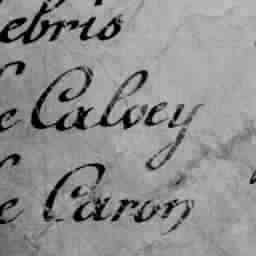 ebris
e Calvey
e Caron